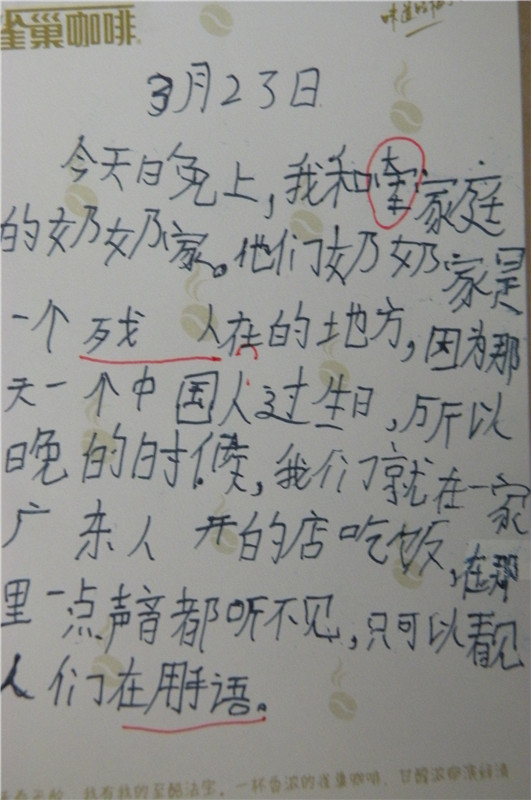 雀巢咖啡
味道好极
3月23日
今天日免上,我和牵家庭
的奶奶家。他们奶奶家是
一个残 人在的地方,因为那
天一个中国人过生日,所以
晚的时候,我们就在一家
广东人开的店吃饭,在那
里一点声音都听不见,只可以看见
人们在用手语。
一杯香浓的雀巢咖啡,甘醇浓郁